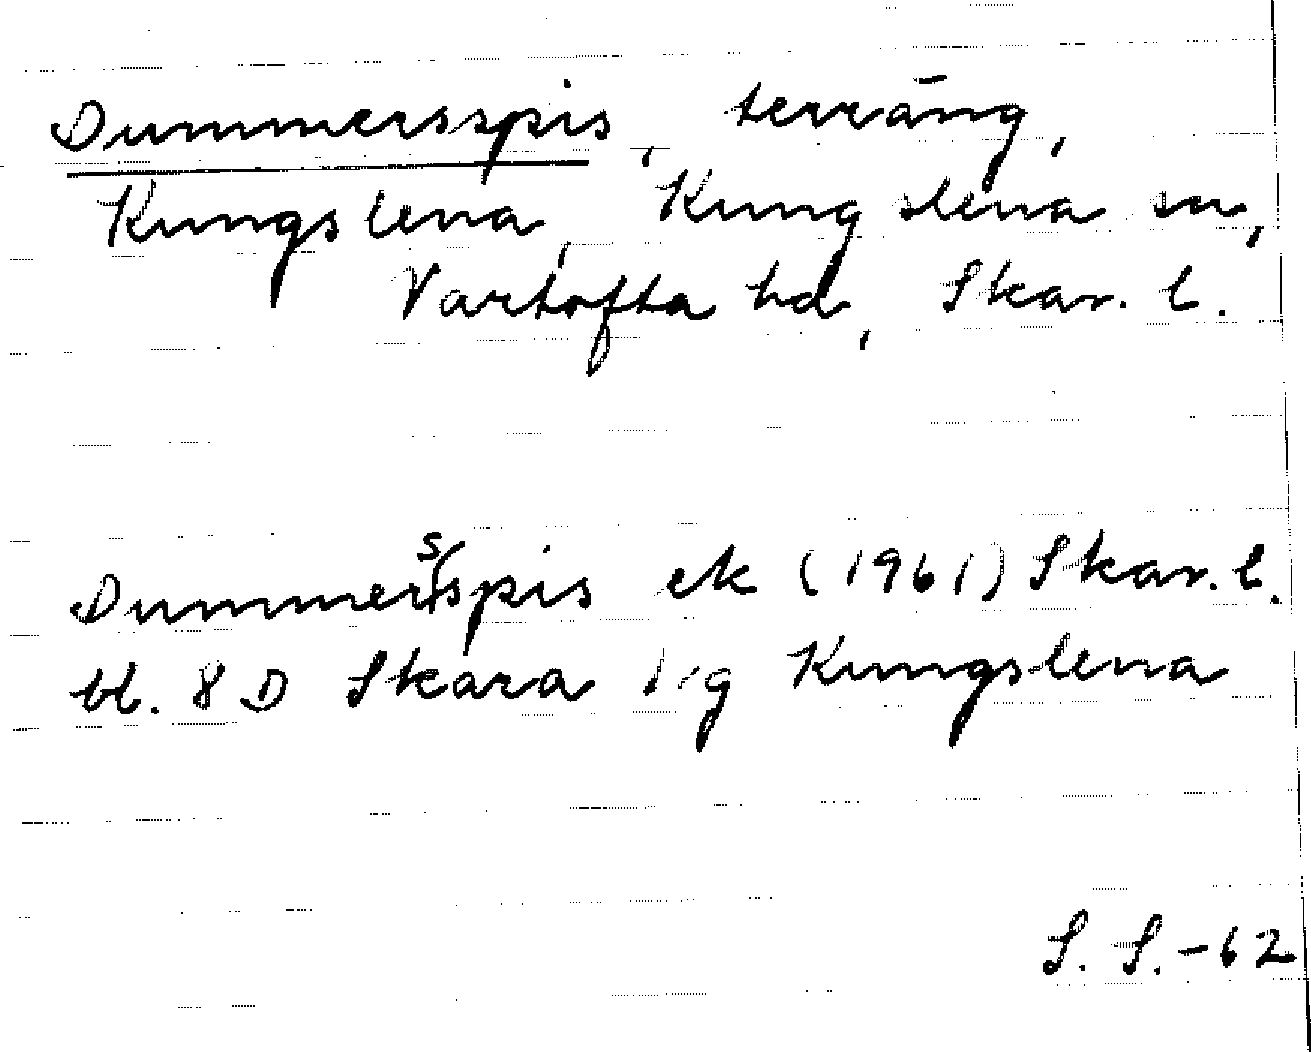 Dummersspis, terräng,
Kungslena, Kungslena sn,
Vartofta hd, Skar. l.
Dummersspis ek (1961) Skar. l.
bl. 8 D Skara i g Kungslena
S. S. -62